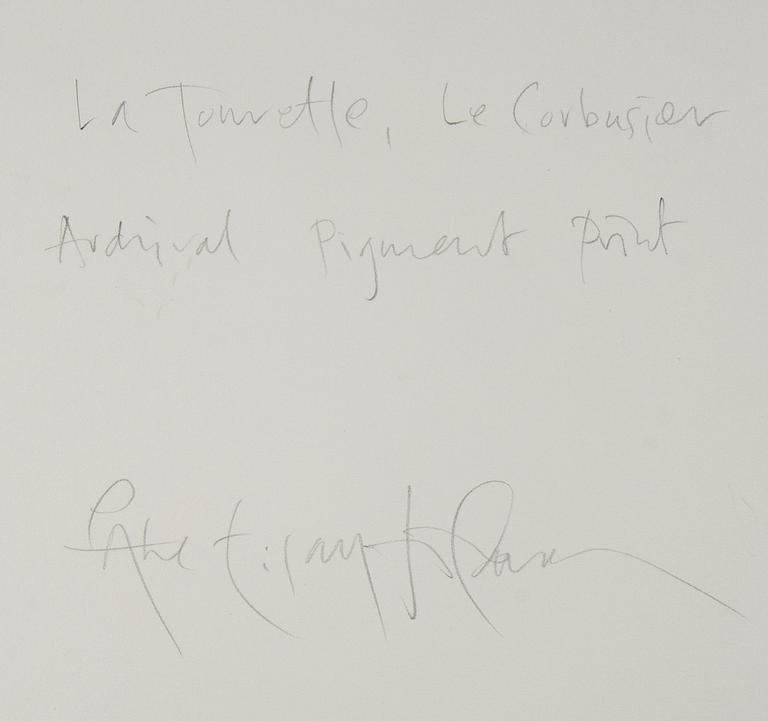 La Tourette, Le Corbusier
Archival Pigment Print